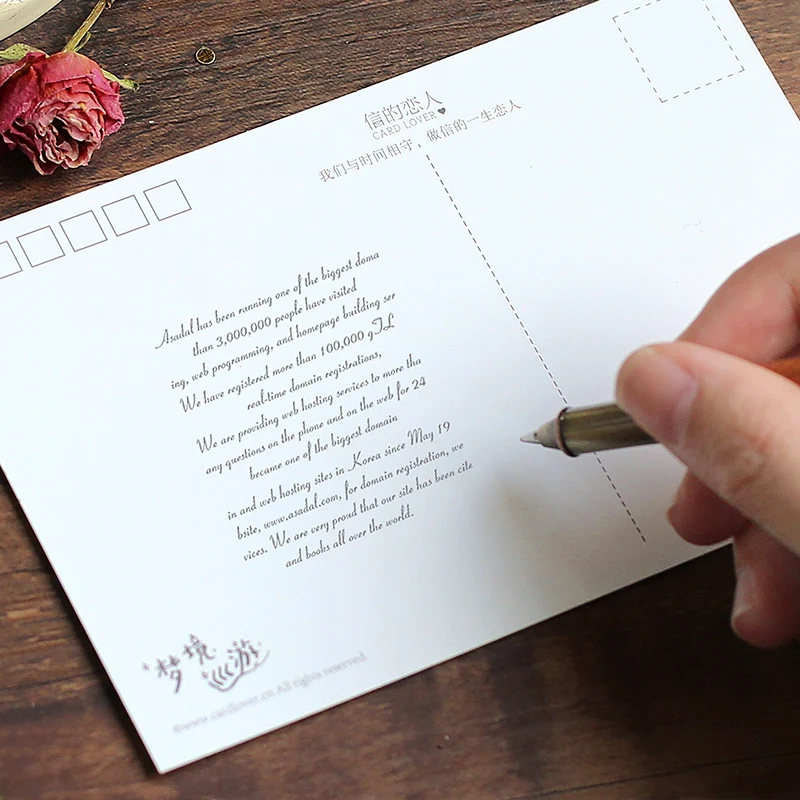 信的恋人
CARD LOVER
我们与时间相守，做信的一生恋人
Asadal has been running one of the biggest doma
than 3,000,000 people have visited
ing, web programming, and homepage building ser
We have registered more than 100,000 gTL
real-time domain registrations,
We are providing web hosting services to more tha
any questions on the phone and on the web for 24
became one of the biggest domain
in and web hosting sites in Korea since May 19
bsite, www.asadal.com, for domain registration, we
vices. We are very proud that our site has been cite
and books all over the world.
梦境
巡游
©www.cardlover.cn All rights reserved.